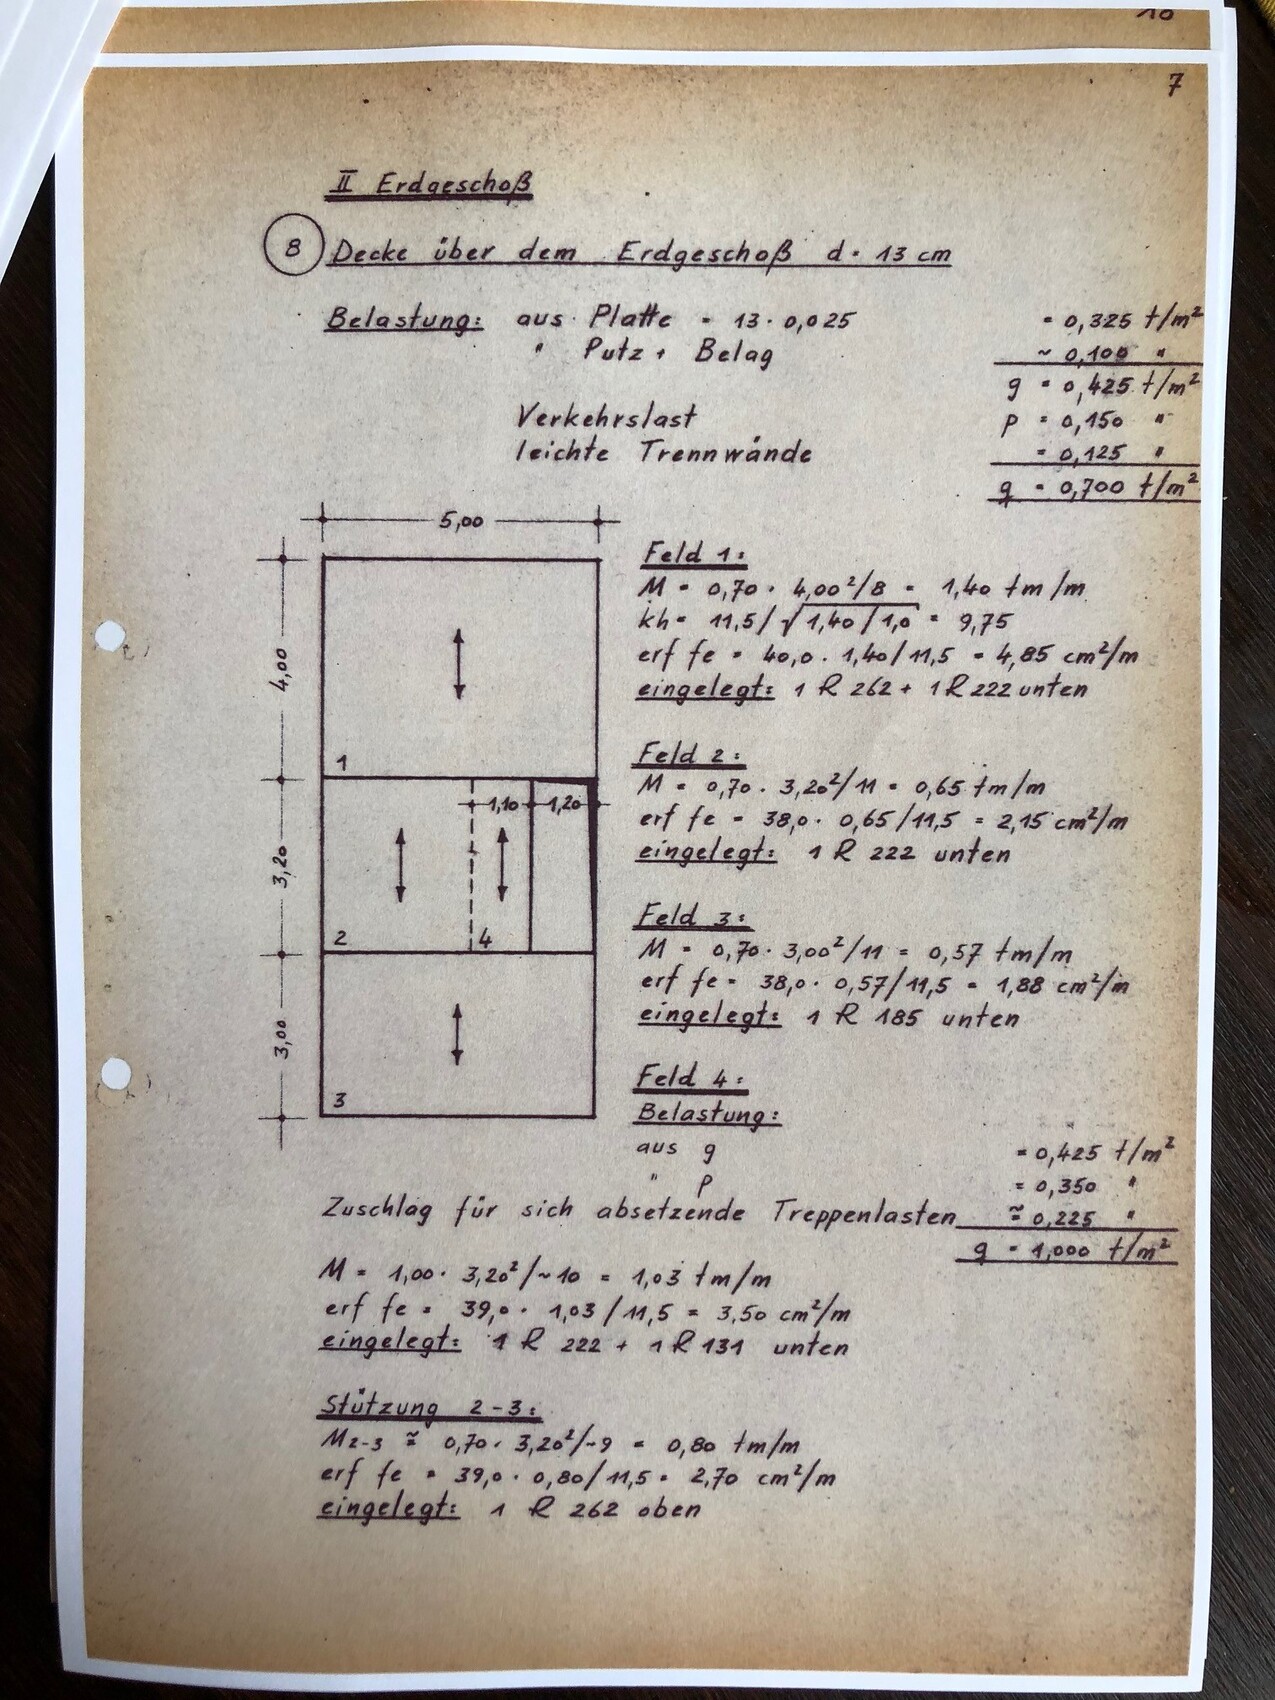 7
II Erdgeschoß
8 Decke über dem Erdgeschoß d = 13 cm
Belastung: aus Platte = 13 · 0,025 = 0,325 t/m²
" Putz + Belag ~ 0,100 "
g = 0,425 t/m²
Verkehrslast p = 0,150 "
leichte Trennwände = 0,125 "
q = 0,700 t/m²
5,00
4,00
3,20
3,00
1
1,10
1,20
2
4
3
Feld 1:
M = 0,70 · 4,00²/8 = 1,40 tm/m
kh = 11,5/√1,40/1,0 = 9,75
erf fe = 40,0 · 1,40/11,5 = 4,85 cm²/m
eingelegt: 1 R 262 + 1 R 222 unten
Feld 2:
M = 0,70 · 3,20²/11 = 0,65 tm/m
erf fe = 38,0 · 0,65/11,5 = 2,15 cm²/m
eingelegt: 1 R 222 unten
Feld 3:
M = 0,70 · 3,00²/11 = 0,57 tm/m
erf fe = 38,0 · 0,57/11,5 = 1,88 cm²/m
eingelegt: 1 R 185 unten
Feld 4:
Belastung:
aus g = 0,425 t/m²
" p = 0,350 "
Zuschlag für sich absetzende Treppenlasten ≅ 0,225 "
q = 1,000 t/m²
M = 1,00 · 3,20²/~10 = 1,03 tm/m
erf fe = 39,0 · 1,03/11,5 = 3,50 cm²/m
eingelegt: 1 R 222 + 1 R 131 unten
Stützung 2-3:
M2-3 ≅ 0,70 · 3,20²/~9 = 0,80 tm/m
erf fe = 39,0 · 0,80/11,5 = 2,70 cm²/m
eingelegt: 1 R 262 oben